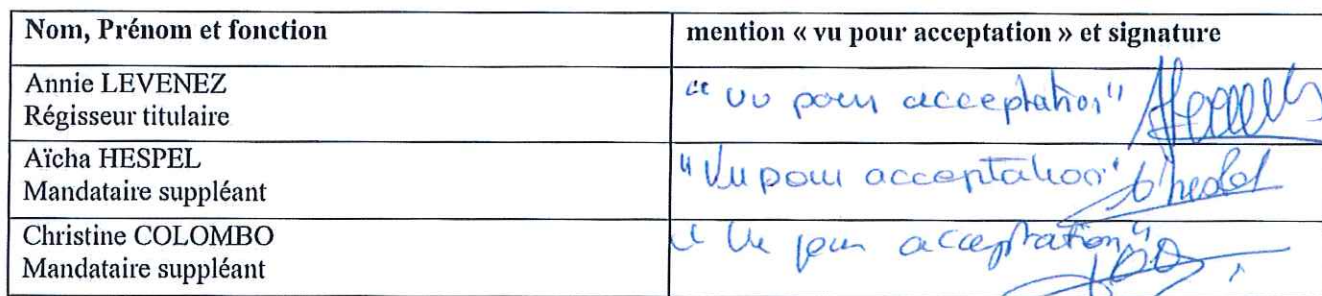 Nom, Prénom et fonction
mention « vu pour acceptation » et signature
Annie LEVENEZ
Régisseur titulaire
" vu pour acceptation"
Aïcha HESPEL
Mandataire suppléant
"Vu pour acceptation"
Christine COLOMBO
Mandataire suppléant
" Vu pour acceptation"